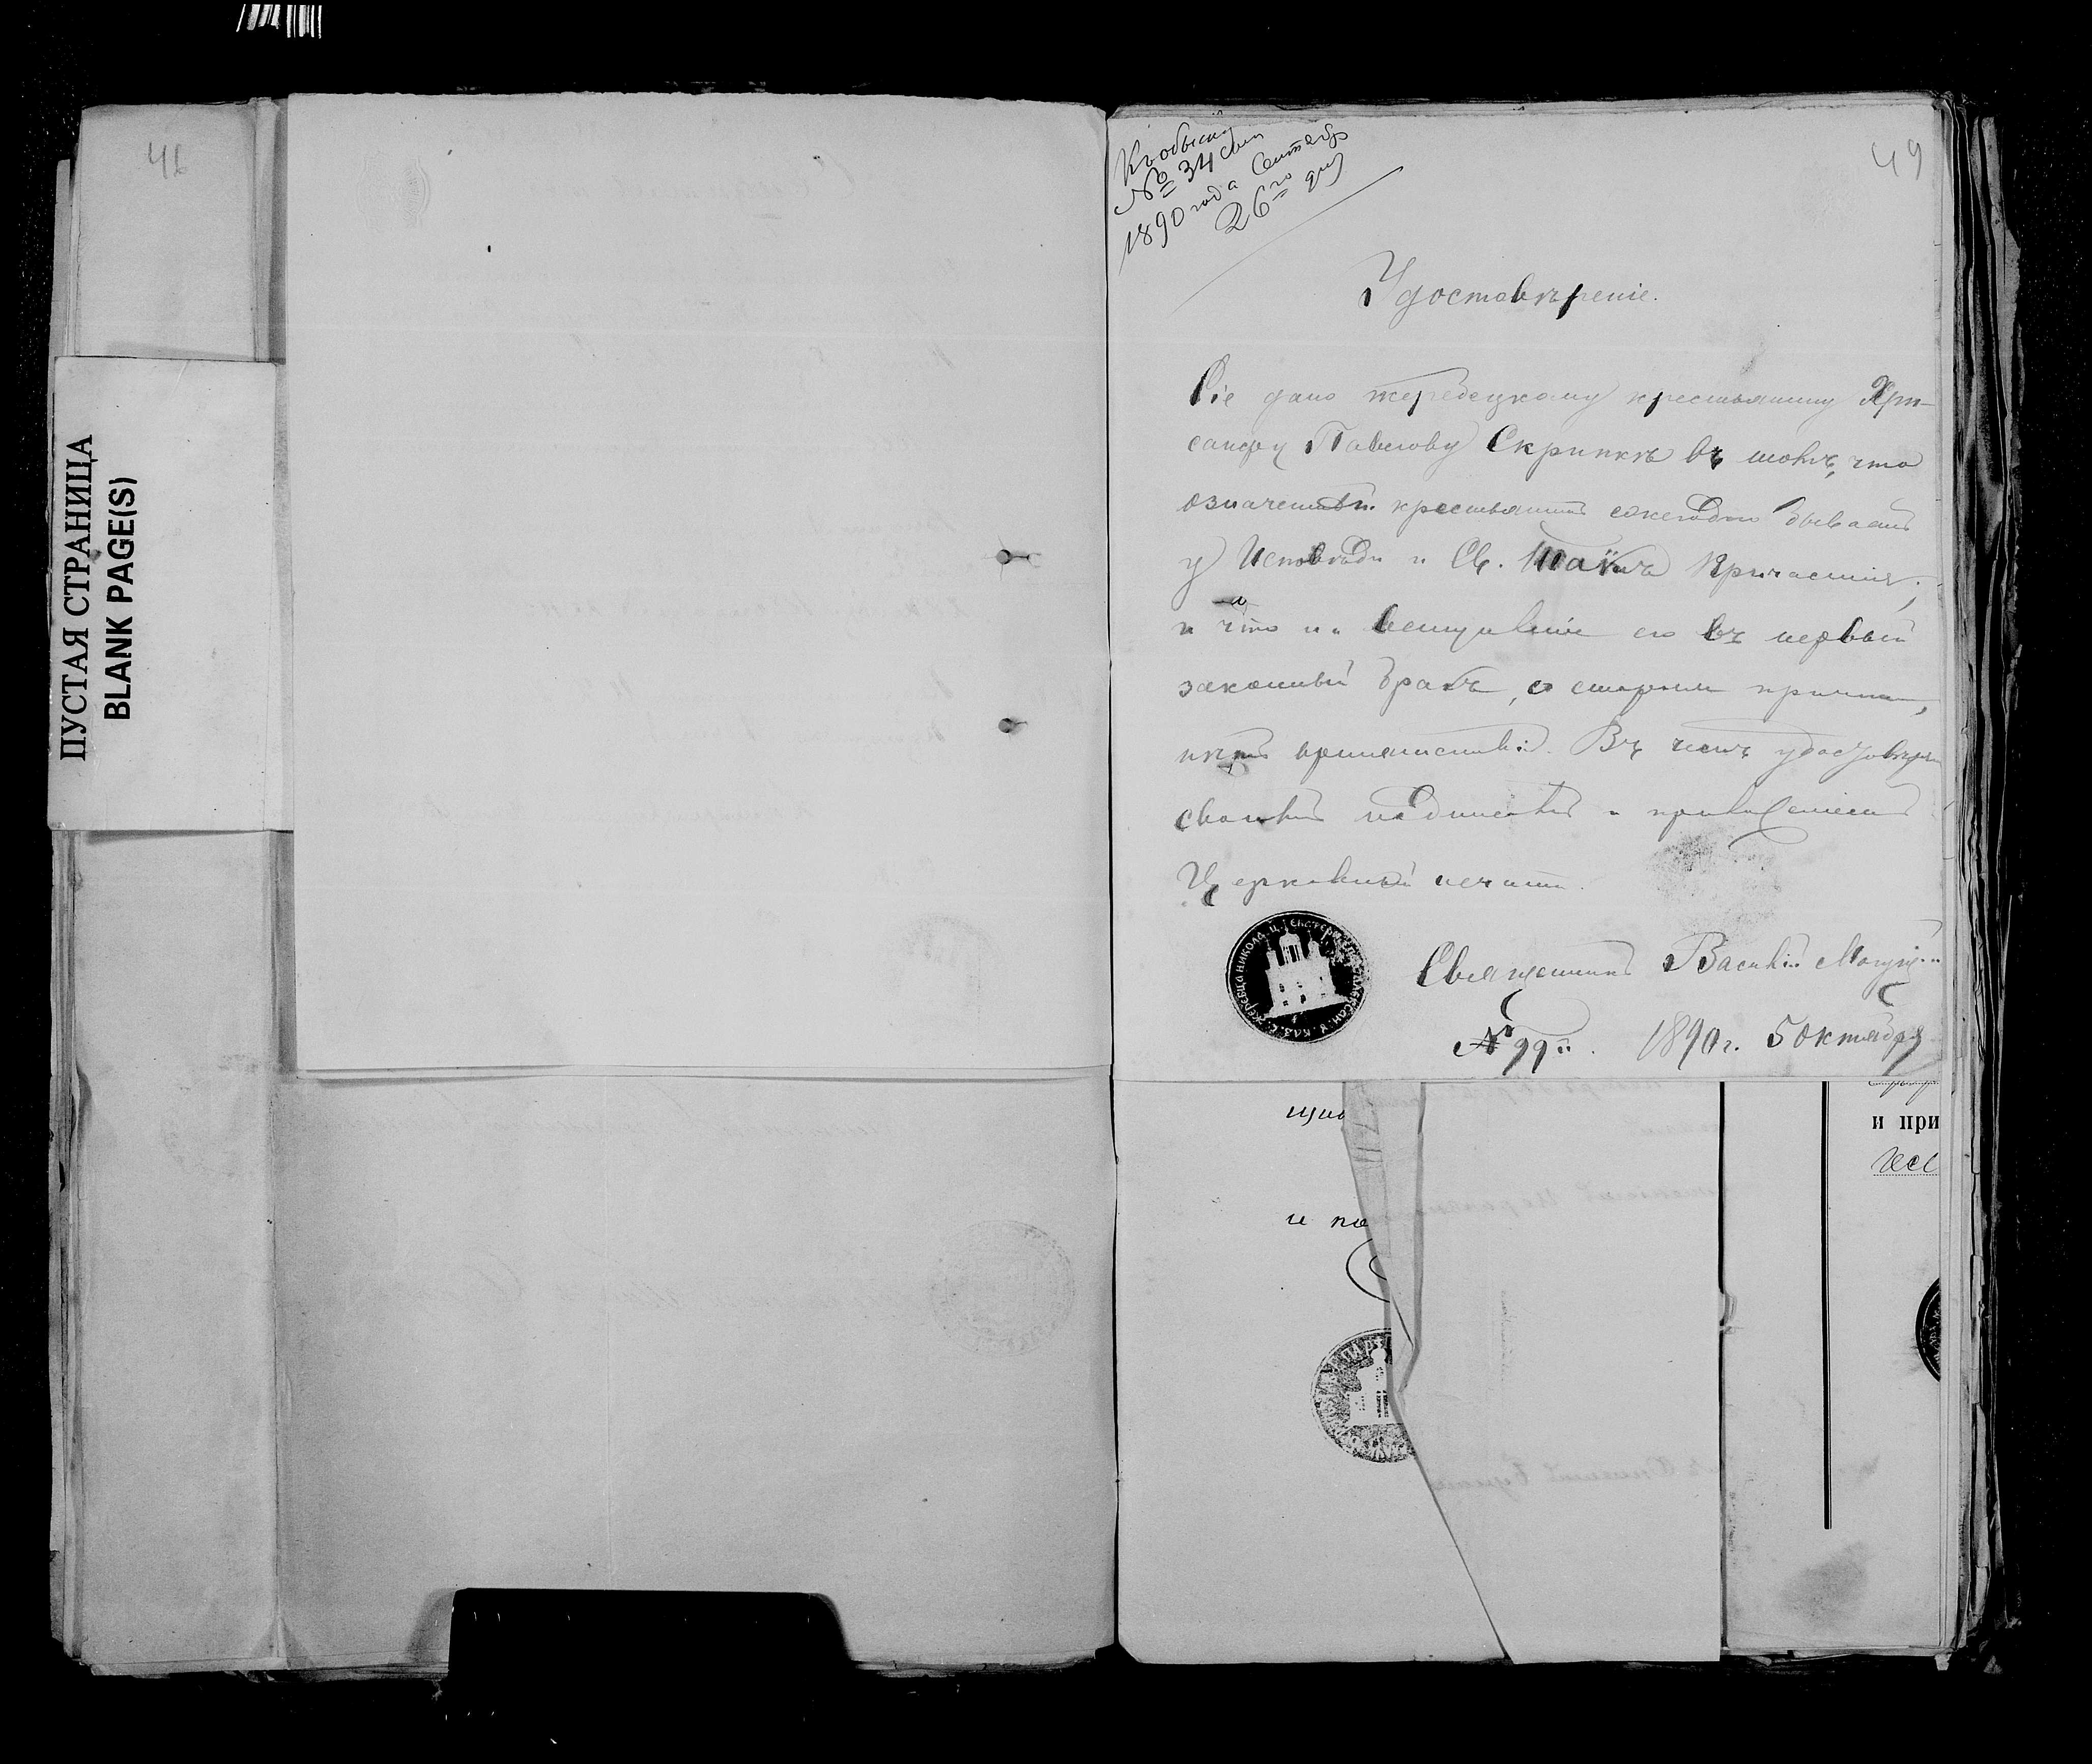 46
ПУСТАЯ СТРАНИЦА
BLANK PAGE(S)
Къ обыску
№ 34
1890 года Сентябр
26го дня
49
Удостовѣреніе.
Сіе дано жеребецкому крестьянину Хри-
санфу Павлову Скрипкѣ въ томъ, что
означенный крестьянинъ ежегодно бываетъ
у Исповѣди и Св. Таинъ Причастія;
и что на вступленіе его въ первый
законный бракъ, со стороны причта,
нѣтъ препятствій. Въ чемъ удостовѣряю
своимъ подписомъ и приложеніемъ
Церковной печати.
Священникъ Василій
№ 99й. 1890 г. 5 октября
и при
и по